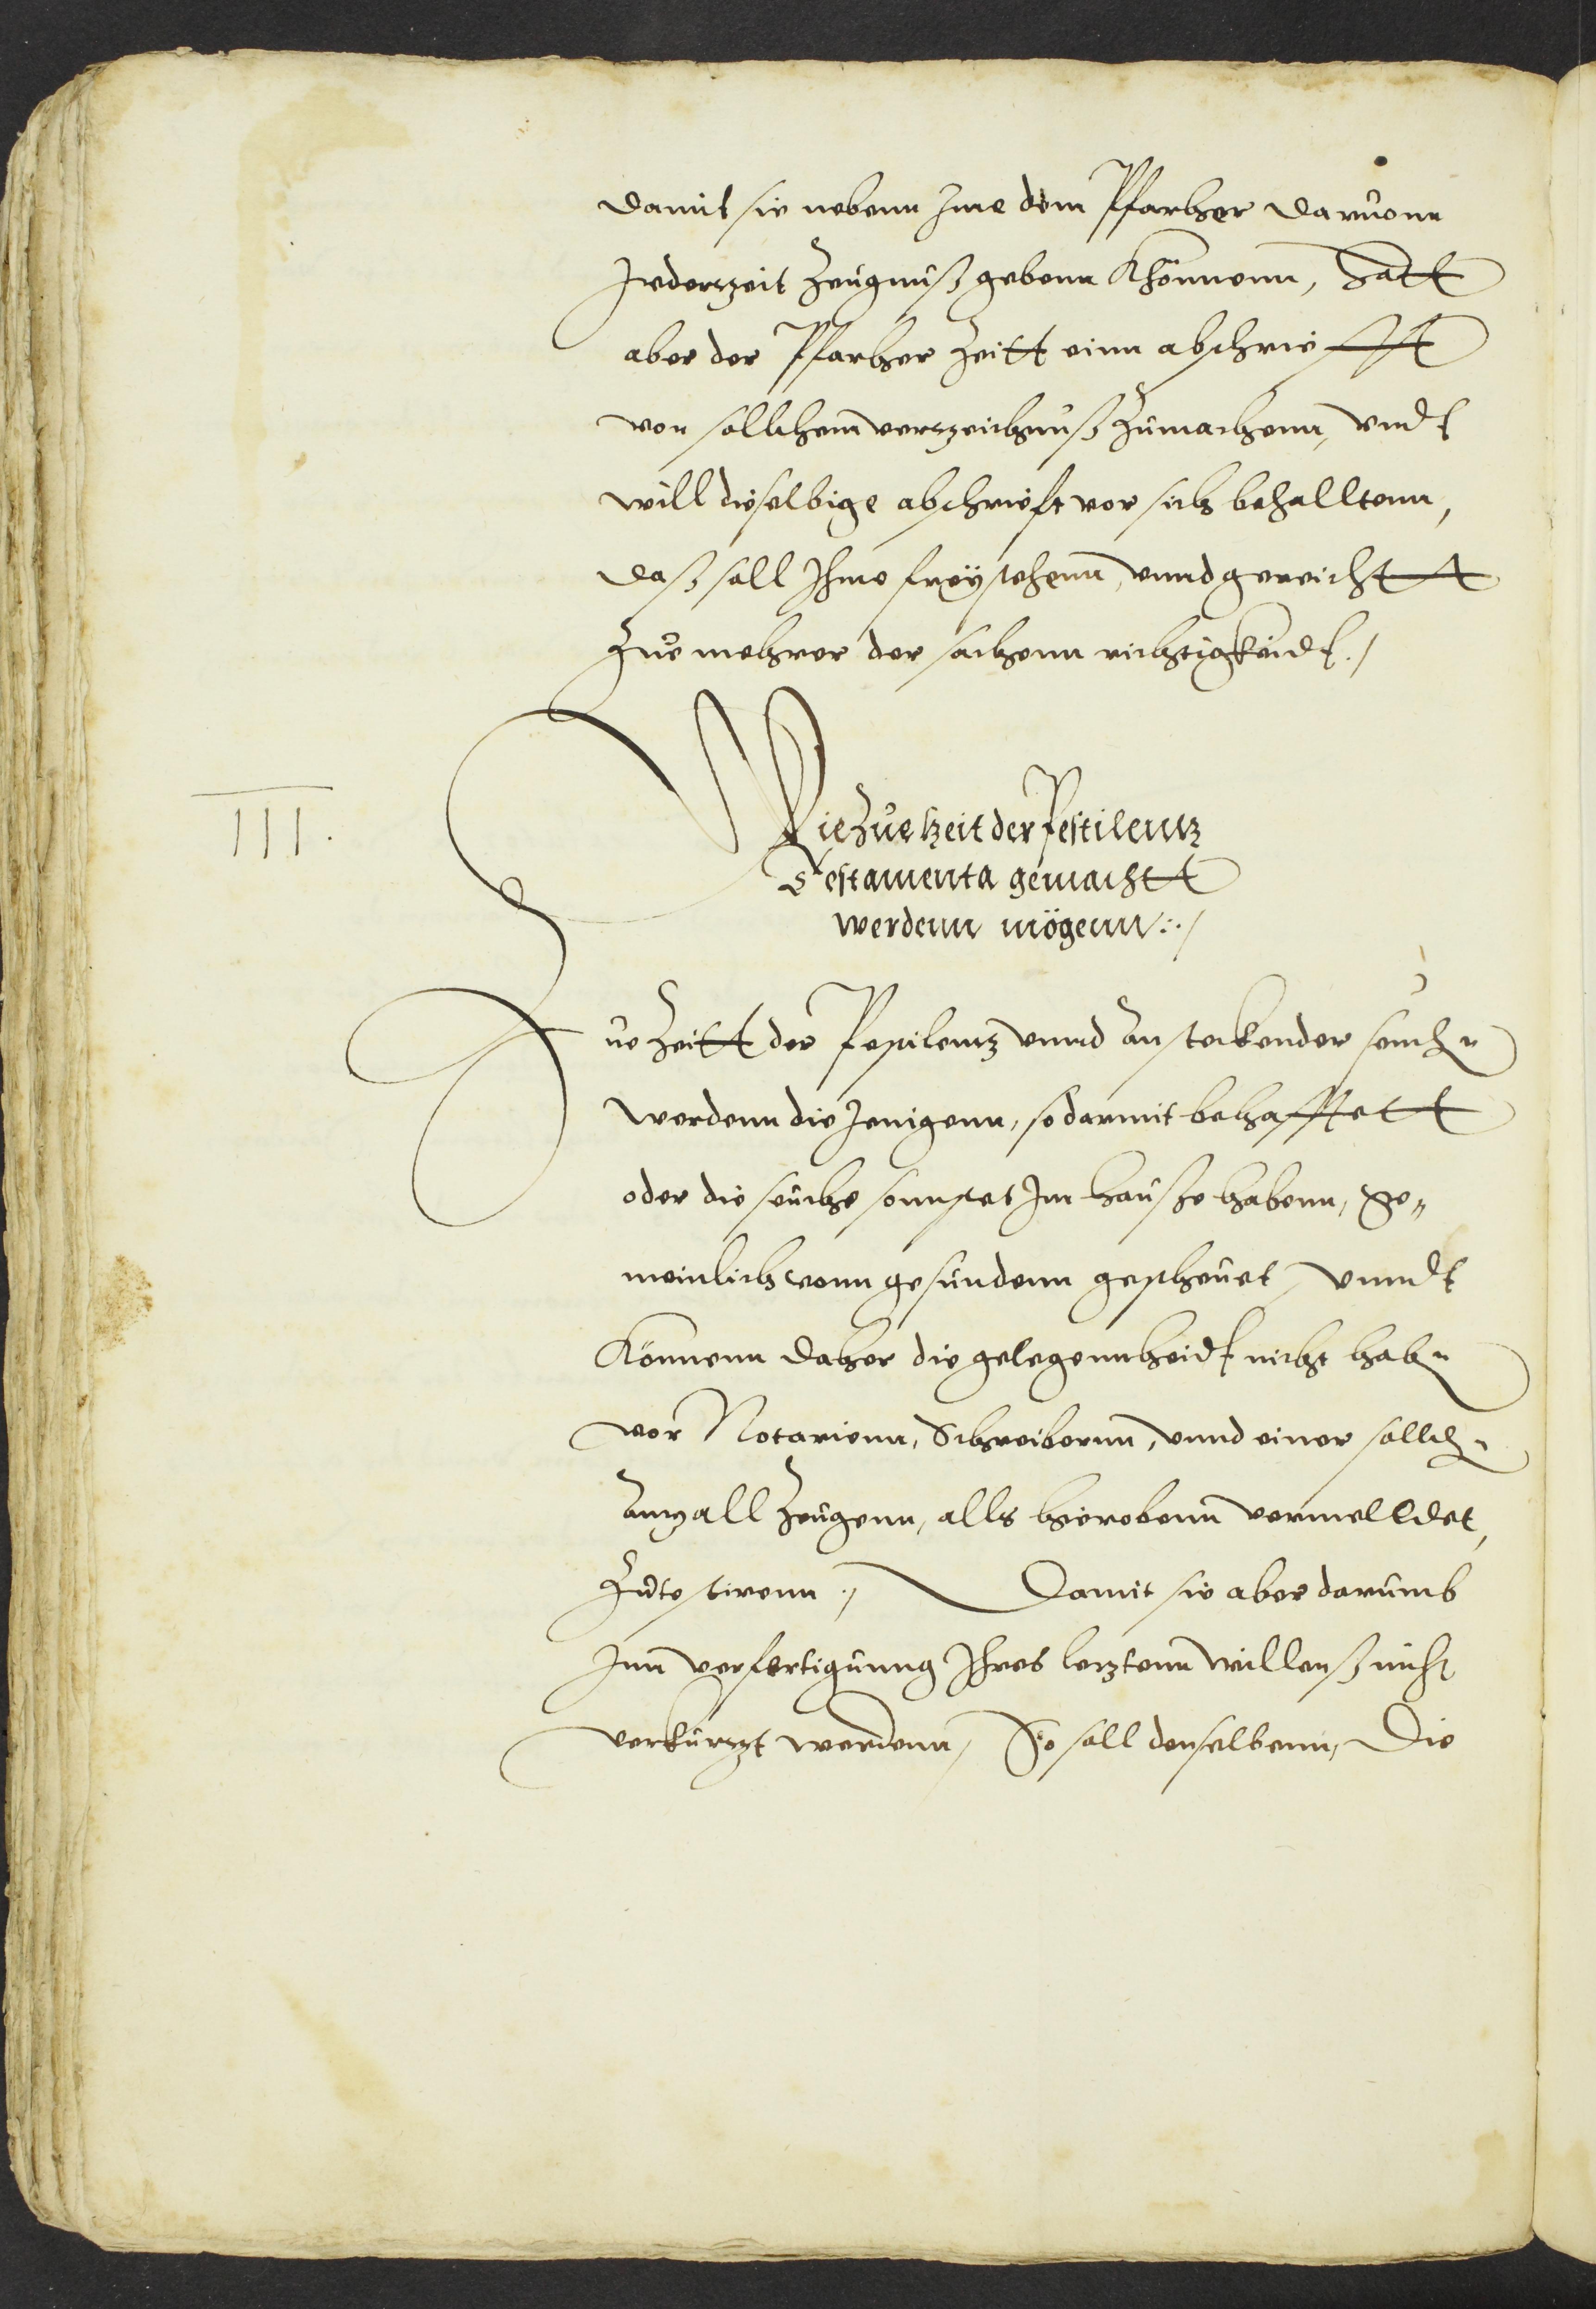 damit sie nebenn Ime dem Pfarherr daruonn
Jederzeit Zeugnuß gebenn Khönnenn, Hatt
aber der Pfarher Zeitt einn abschriefft
von sollchem verzeichnuß Zumachenn, vnndt
will dieselbige abschrieft vor sich behalltenn,
daß soll Ihme freÿ stehenn, vnnd gereichtt
Zue mehrer der sachenn richtigkeidt./
III.
Wie Zue Zeit der Pestilentz
Testamenta gemachtt
werdenn mögenn:./
Zue Zeitt der Pestilentz vnnd ansteckender seuch&#x0303;n
werdenn die Jenigenn, so darmit behafftett
oder die seuche sonnstet Im hauße habenn, ge„
meinlich vonn gesundenn gescheuet, vnndt
Können daher die gelegennheidt nicht habn
vor Notarienn, Schreibernn, vnnd einer sollchn
Anzall Zeugenn, alls hierobenn vermelldet,
Zutestirenn./ Damit sie aber darumb
Inn verfertigunng Ihres letztenn willenß nicht
verkürzt werdenn, So soll denselbenn, Die